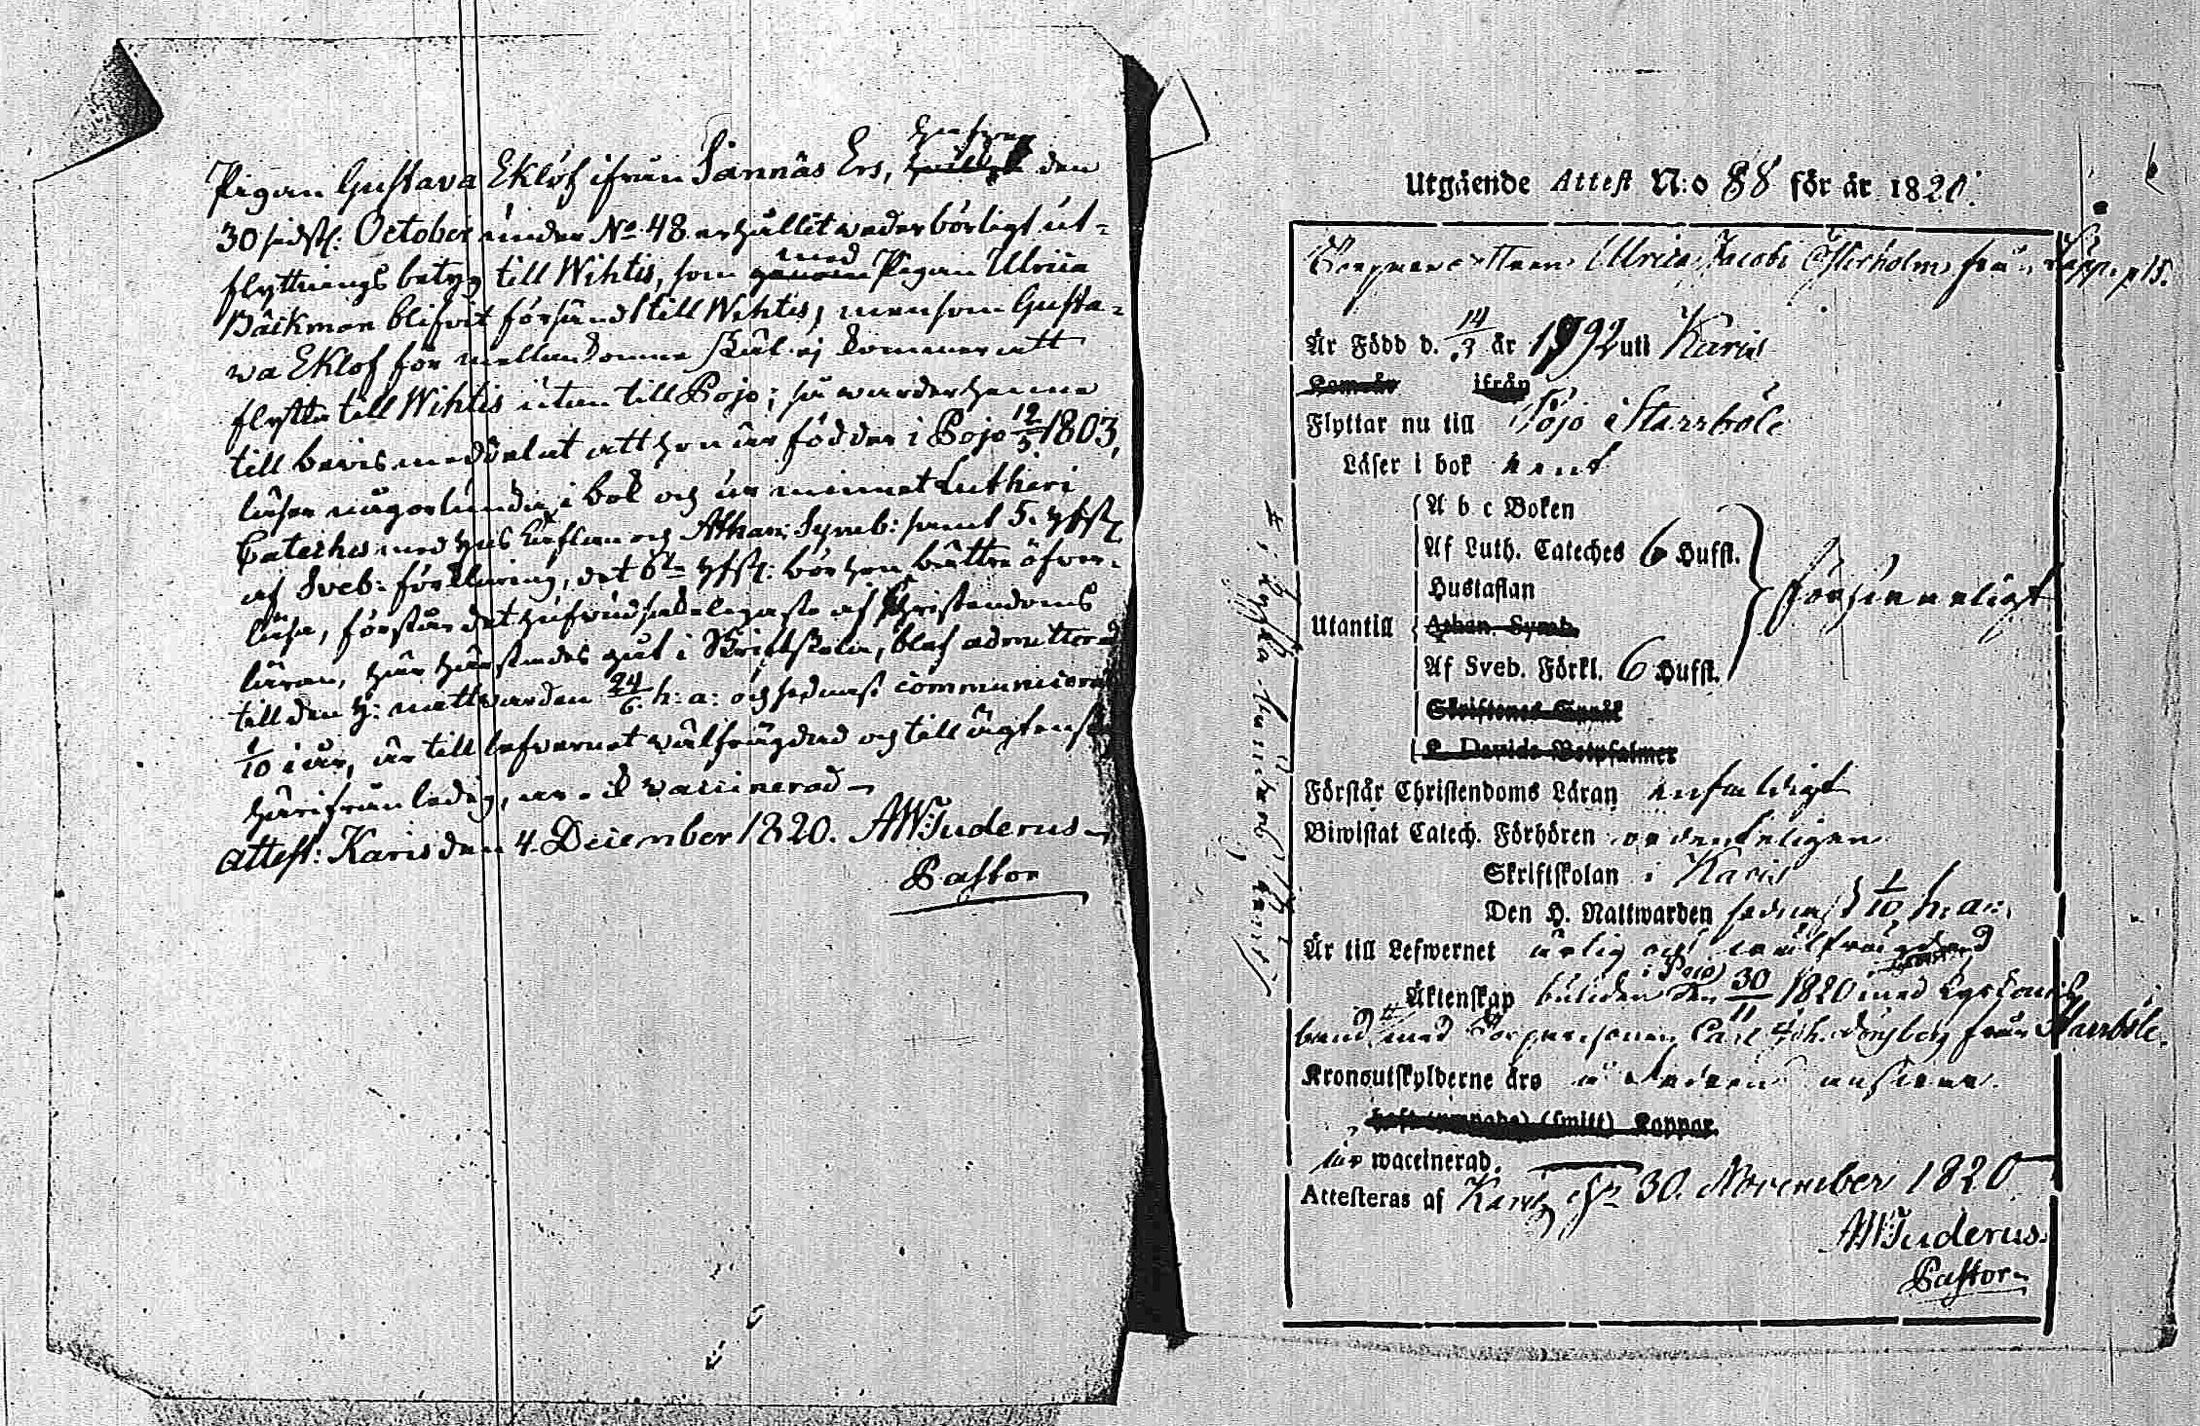 Pigan Gustava Eklöf ifrån Sannäs Ers, den
30 sidstl. October under No. 48. erhållit vederbörligt ut-
flyttnings betyg till Wihtis, som med Pigan Ulrica
Bäckman blifvit försänd till Wihtis; men som Gusta-
va Eklöf för mellankomne skäl ej kommer att
flytta till Wihtis utan till Pojo; så warder henne
till bevis meddelat att hon är född i Pojo 12/5 1803,
läser någorlunda i bok och ur minnet Lutheri
Cateches med Hus taflan och Athan: Symb: samt 5. hfst.
af Sveb: förklaring, det 6te hfst: bör hon bättre öfver-
läsa, förstår det hufvudsakeligaste af Christendoms
läran, har härstädes gått i Skriftskola, blef admitterad
till den H: nattvarden 24/6. h: a: och sednast communicerat
1/10 i år, är till lefvernet välfrägdad och till ägtenskap
härifrån ledig, vaccinerad
attest: Karis den 4. December 1820. AWTuderus
Pastor
Utgående Attest N:o 88 för år 1820.
Ulrica Jacobi Österholm från
Är Född d. 14/3 år 1792 uti Karis
ifrån
Flyttar nu till Pojo i Starrböle
Läser i bok rent
A b c Boken
Af Luth. Cateches 6 Huffl.
Hustaflan
Utantill
Athan. Symb.
Af Sveb. Förkl. 6 Huffl.
försvarligt
Skriftenes Språk
K. Davids Botpsalmer
Förstår Christendoms Läran enfaldigt
Biwistat Catech. Förhören ordenteligen
Skriftskolan i Karis
Den H. Nattwarden sednast 1/10 h. a:
Är till Lefwernet ärlig och välfrägdad
Äktenskap i Pojo den 30/11 1820 med
band med Carl Joh. från Starrböle.
Kronoutskylderne äro
(smitt) Koppor.
är waccinerad.
Attesteras af Karis 30. November 1820
AWTuderus.
Pastor